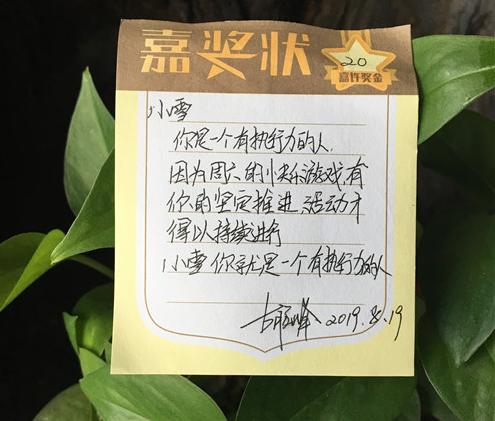 嘉奖状
20
嘉许奖金
小雪
你是一个有执行力的人.
因为周六的小快乐游戏有
你的坚定推进活动才
得以持续进行
小雪你就是一个有执行力的人
2019.8.19